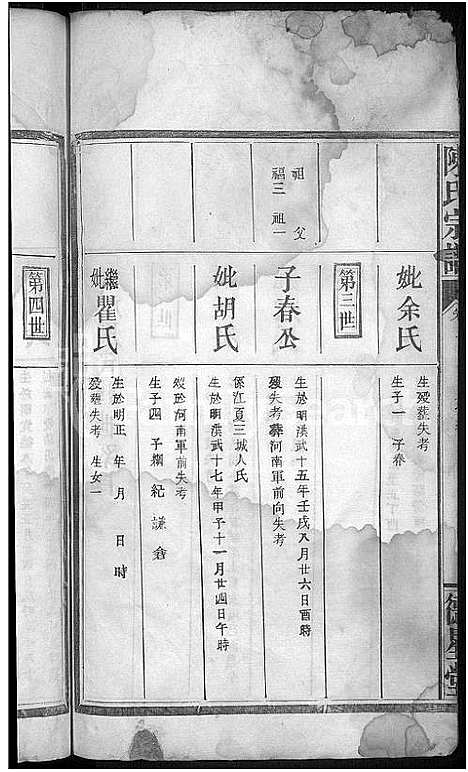 陳氏宗譜
妣余氏
生歿葬失考
生子一 子春
第三世
祖父
福三 祖一
子春公
生於明洪武十五年壬戌八月廿六日酉時
歿失考葬河南軍前向失考
妣胡氏
係江夏三城人氏
生於明洪武十七年甲子十一月廿四日午時
歿於河南軍前失考
生子四 子 紀 謙
繼妣瞿氏
生於明正 年 月 日 時
歿葬失考 生女一
第四世